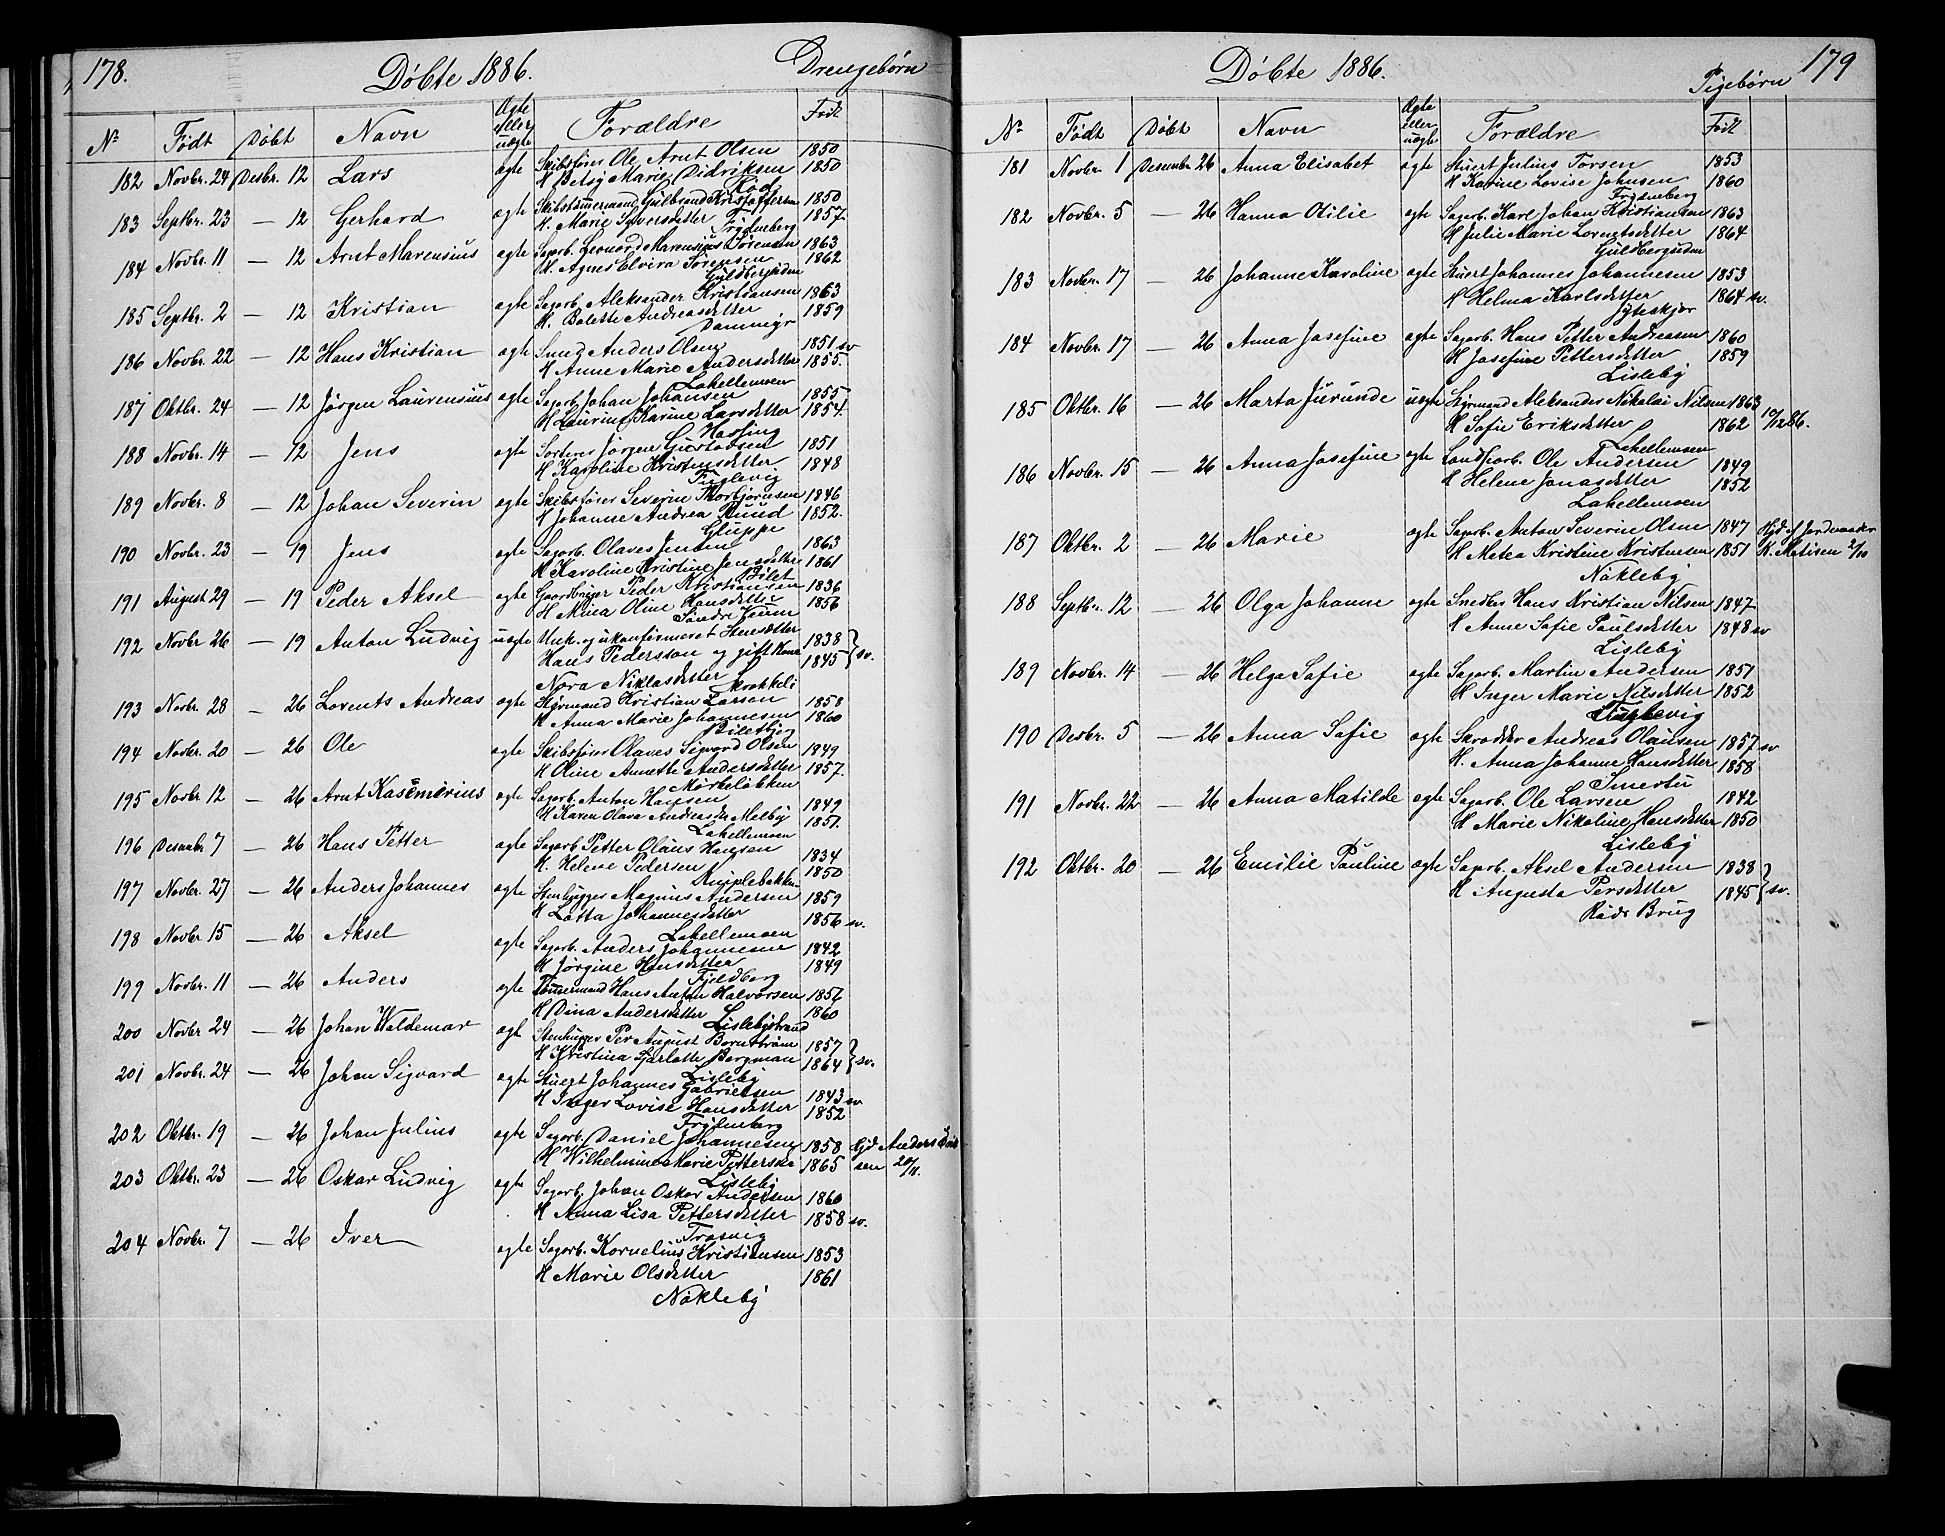 178.
Döbte 1886.
Drengebørn
No Født Døbt Navn Ægte eller uægte Forældre Født
182 Novbr. 24 Desbr. 12 Lars ægte Skibsfører Ole Arnt Olsen 1850
H Betsy Marie Didriksen 1850
Röd
183 Septbr. 23 — 12 Gerhard ægte Skibstømmermand Gulbrand Kristoffersen 1850
H. Marie Iversdatter 1857
Frydenberg
184 Novbr. 11 — 12 Arnt Marensius ægte Sagarb. Leonard Marensius Sørensen 1863
H. Agnes Elvira Sørensen 1862
Guldbergsiden
185 Septbr. 2 — 12 Kristian ægte Sagarb. Aleksander Kristiansen 1863
H. Bolette Andreasdatter 1859
Dammyr
186 Novbr. 22 — 12 Hans Kristian ægte Smed Anders Olsen 1851 sv
H Anne Marie Andersdatter 1855.
Lahellemoen
187 Oktbr. 24 — 12 Jørgen Laurensius ægte Sagarb. Johan Johansen 1855
H Laurine Karine Larsdatter 1854.
Hassing
188 Novbr. 14 — 12 Jens ægte Sorterer Jørgen Gustavsen 1851
H Karoline Kristensdatter 1848
Fuglevig
189 Novbr. 8 — 12 Johan Severin ægte Skibsfører Severin Thorbjørnsen 1846
H Johanne Andrea Ruud 1852.
Gluppe
190 Novbr. 23 — 19 Jens ægte Sagarb. Olaves Jensen 1863
H Karoline Kristine Jensdatter 1861
Bilet
191 August 29 — 19 Peder Aksel ægte Gaardbruger Peder Kristiansen 1836
H Mina Oline Hansdatter 1856
Søndre Kaurin
192 Novbr 26 — 19 Anton Ludvig uægte Unk. og ukonfirmeret
Hans Pedersson og gift Kone 1838
Nora Niklasdatter 1845 } sv.
Skrokkeli
193 Novbr. 28 — 26 Lorents Andreas ægte Styrmand Kristian Larsen 1858
H Anna Marie Johannesen 1860
Biletbjerg
194 Novbr. 20 — 26 Ole ægte Skibsfører Olaves Sigvard Olsen 1849
H Oline Annette Andersdatter 1857.
Mørkeløkken
195 Novbr 12 — 26 Arnt Kasemirius ægte Sagarb. Anton Hansen 1849
H Karen Olava Andreasdr Melby 1851.
Lahellemoen
196 Desembr 7 — 26 Hans Petter ægte Sagarb Petter Olaus Hansen 1834
H. Helene Pedersen 1850
Kniplebakken
197 Novbr. 27 — 26 Anders Johannes ægte Stenhugger Magnus Andersen 1859
H Lotta Johannesdatter 1856 sv.
Lahellemoen
198 Novbr 15 — 26 Aksel ægte Sagarb. Anders Johannesen 1842
H Jørgine Hansdatter 1849
Fjeldberg
199 Novbr. 11 — 26 Anders ægte Tømmermand Hans Anton Halvorsen 1856
H Dina Andersdatter 1860
Lislebystrand
200 Novbr 24 — 26 Johan Waldemar ægt Stenhugger Per August Bornstrøm 1857
H Kristina Sjarlotte Bergman 1864 } sv.
Lisleby
201 Novbr. 24 — 26 Johan Sigvard ægte Stuert Johannes Gabrielsen 1843 sv
H Inger Lovise Hansdatter 1852
Frydenberg
202 Oktbr. 19 — 26 Johan Julius ægte Sagarb. Daniel Johannesen 1858 Hjd Anders
H Wilhelmine Marie Pettersen 1865 sen 20/11.
Lisleby
203 Oktbr. 23 — 26 Oskar Ludvig ægte Sagarb. Johan Oskar Andersen 1860
H Anna Lisa Pettersdatter 1858 sv.
Trosvig
204 Novbr. 7 — 26 Iver ægte Sagarb. Kornelius Kristiansen 1853
H Marie Olsdatter 1861
Nökleby
179
Döbte 1886.
Pigebørn
No Født Døbt Navn Ægte eller uægte Forældre Født
181 Novbr. 1 Desembr. 26 Anna Elisabet ægte Stuert Julius Torsen 1853
H Karine Lovise Johnsen 1860
Frydenberg
182 Novbr. 5 — 26 Hanna Otilie ægte Sagarb. Karl Johan Kristiansen 1863
H Julie Marie Lorentsdatter 1864
Guldbergsiden
183 Novbr. 17 — 26 Johanne Karoline ægte Stuert Johannes Johannesen 1853
H Helma Karlsdatter 1864 sv.
Gyteskjær
184 Novbr. 17 — 26 Anna Josefine ægte Sagarb. Hans Petter Andreasen 1860
H Josefine Pettersdatter 1859
Lisleby
185 Oktbr. 16 — 26 Marta Jurunde uægte Styrmand Aleksander Nikolai Nilsen 1863 10/1286.
H Sofie Eriksdatter 1862
Lahellemoen
186 Novbr. 15 — 26 Anna Josefine ægte Landharb. Ole Andersen 1849
H Helene Jonasdatter 1852
Lahellemoen
187 Oktbr. 2 — 26 Marie ægte Sagarb. Anton Severin Olsen 1847 Hjd af Jordemoder
H Metea Kristine Kristensen 1851 K. Matisen 2/10
Nökleby
188 Septbr. 12 — 26 Olga Johanne ægte Snedker Hans Kristian Nilsen 1847
H Anne Sofie Paulsdatter 1848 sv
Lisleby
189 Novbr. 14 — 26 Helga Sofie ægte Sagarb. Martin Andersen 1851
H Inger Marie Nilsdatter 1852
Fuglevig
190 Desbr. 5 — 26 Anna Sofie ægte Skrædder Andreas Olausen 1857 sv
H. Anna Johanne Hansdatter 1858
Smertu
191 Novbr. 22 — 26 Anna Matilde ægte Sagarb. Ole Larsen 1842
H Marie Nikoline Hansdatter 1850
Lisleby
192 Oktbr. 20 — 26 Emilie Pauline ægte Sagarb. Aksel Andersen 1838
H Augusta Persdatter 1845 } sv.
Röds Brug